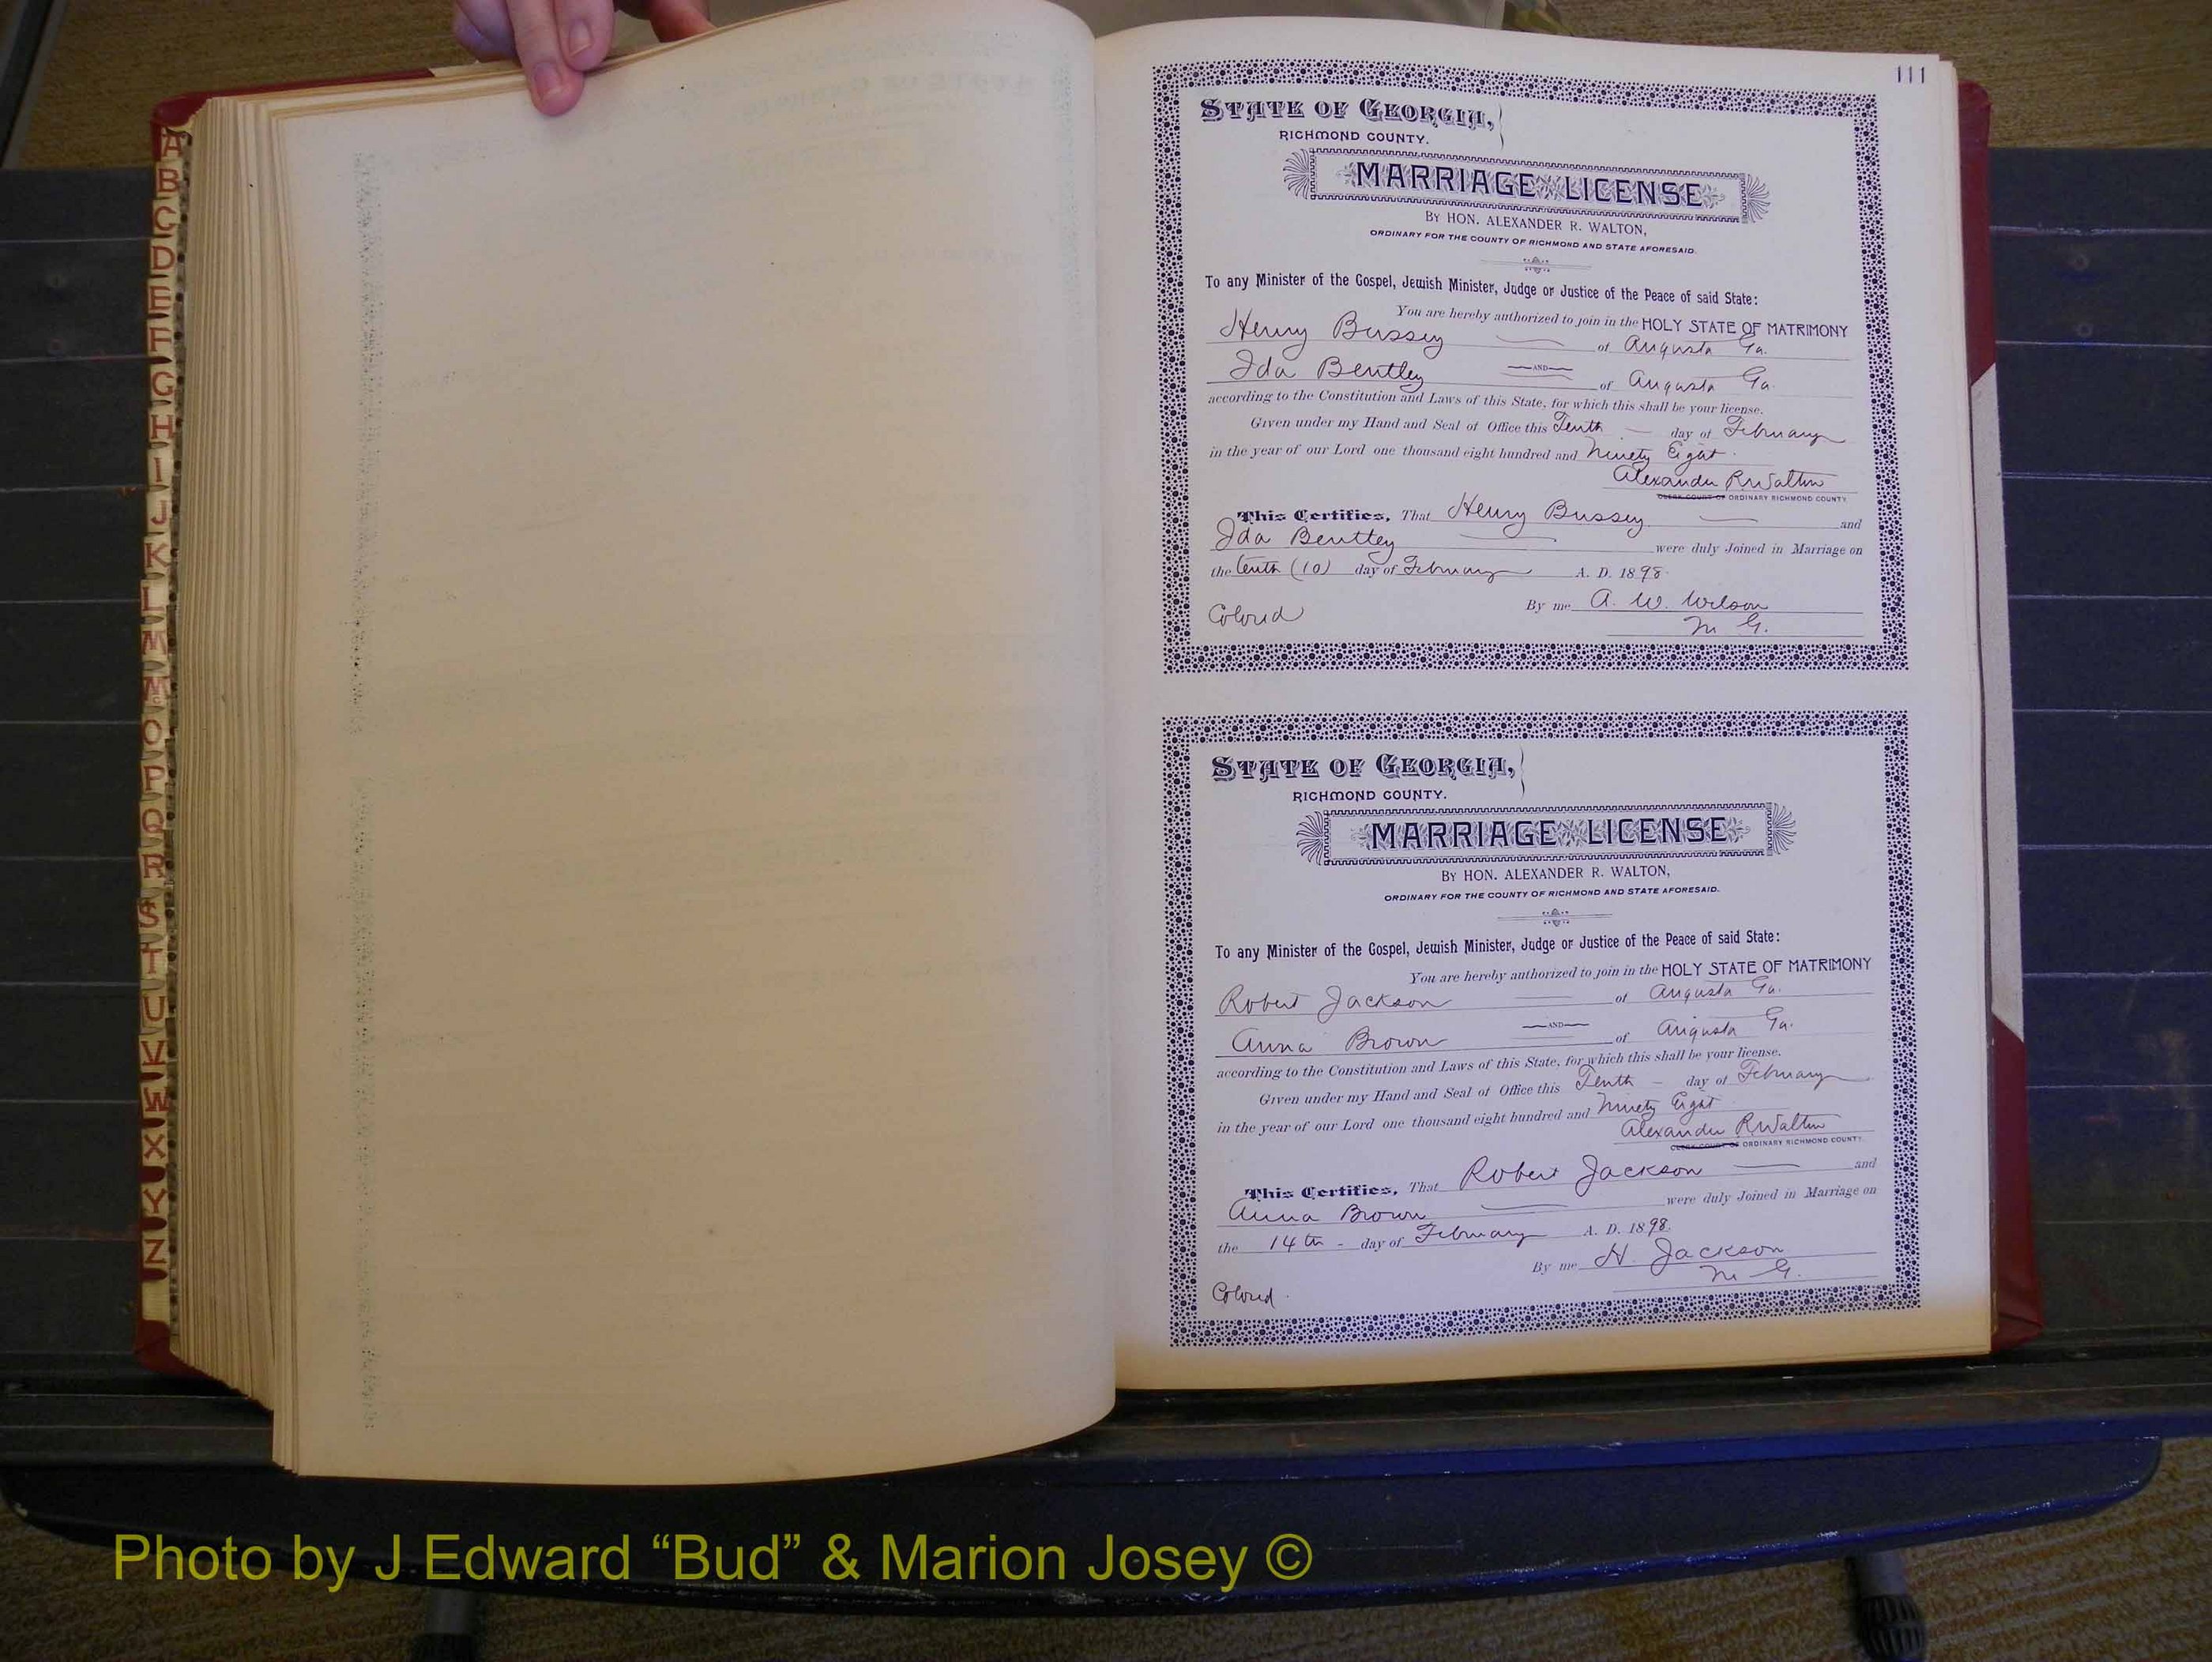 A
B
C
D
E
F
G
H
I
J
K
L
M
Mc
O
P
Q
R
S
T
U
V
W
X
Y
Z
111
STATE OF GEORGIA,
RICHMOND COUNTY.
MARRIAGE LICENSE
BY HON. ALEXANDER R. WALTON,
ORDINARY FOR THE COUNTY OF RICHMOND AND STATE AFORESAID.
To any Minister of the Gospel, Jewish Minister, Judge or Justice of the Peace of said State:
You are hereby authorized to join in the HOLY STATE OF MATRIMONY
Henry Bussey of Augusta Ga.
AND
Ida Bentley of Augusta Ga.
according to the Constitution and Laws of this State, for which this shall be your license.
Given under my Hand and Seal of Office this Tenth day of February
in the year of our Lord one thousand eight hundred and Ninety Eight.
Alexander R Walton
CLERK COURT OF ORDINARY RICHMOND COUNTY
This Certifies, That Henry Bussey and
Ida Bentley were duly Joined in Marriage on
the tenth (10) day of February A. D. 1898.
By me A. W. Wilson
M. G.
Colored
STATE OF GEORGIA,
RICHMOND COUNTY.
MARRIAGE LICENSE
BY HON. ALEXANDER R. WALTON,
ORDINARY FOR THE COUNTY OF RICHMOND AND STATE AFORESAID.
To any Minister of the Gospel, Jewish Minister, Judge or Justice of the Peace of said State:
You are hereby authorized to join in the HOLY STATE OF MATRIMONY
Robert Jackson of Augusta Ga.
AND
Anna Brown of Augusta Ga.
according to the Constitution and Laws of this State, for which this shall be your license.
Given under my Hand and Seal of Office this Tenth - day of February
in the year of our Lord one thousand eight hundred and Ninety Eight
Alexander R Walton
CLERK COURT OF ORDINARY RICHMOND COUNTY.
This Certifies, That Robert Jackson and
Anna Brown were duly Joined in Marriage on
the 14th - day of February A. D. 1898.
By me H. Jackson
M. G.
Colored.
Photo by J Edward “Bud” & Marion Josey ©